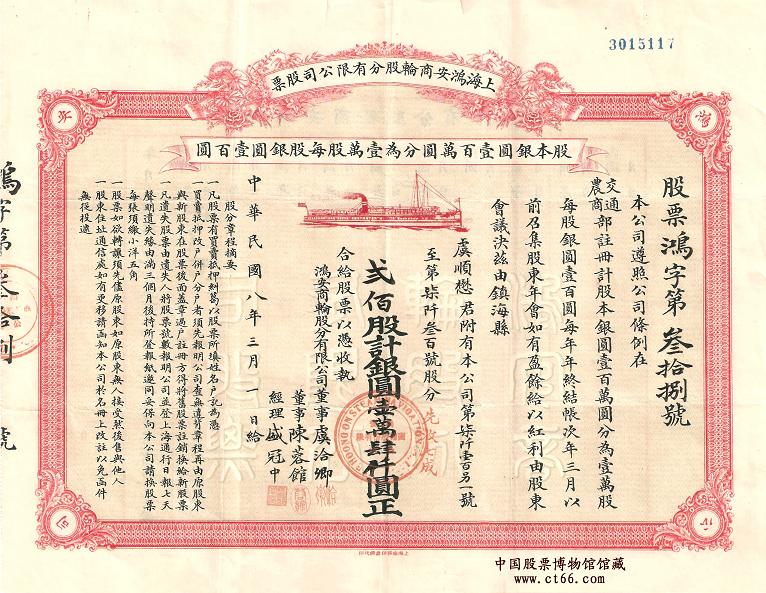 3015117
上海鴻安商輪股分有限公司股票
股本銀圓壹百萬圓分為壹萬股每股銀圓壹百圓
股票鴻字第叁拾捌號
本公司遵照公司條例在
交通
農商
部註冊計股本銀圓壹百萬圓分為壹萬股
每股銀圓壹百圓每年年終結帳次年三月以
前召集股東年會如有盈餘給以紅利由股東
會議決茲由鎮海縣
虞順懋君附有本公司第柒仟壹百另一號
至第柒仟叁百號股分
貳佰股計銀圓壹萬肆仟圓正
先收七成
合給股票以憑收執
鴻安商輪股分有限公司董事虞洽卿
董事陳蓉館
經理盛冠中
中華民國八年三月一日給
股分章程摘要
一凡股票有買賣抵押糾葛以股票所填姓名戶記為憑
一買賣抵押改戶併戶分戶者須先報明公司查無違背章程再由原股東
與新股東在股票後面蓋章過戶註冊方得將舊股票註銷換給新股票
一凡遺失股票由遺失人將股票號數報明公司並登上海通行日報七天
聲明遺失緣由滿三個月後持所登報紙邀同妥保向本公司請換股票
每張須繳小洋五角
一股票如欲轉讓須先儘原股東如原股東無人接受然後售與他人
一股東住址通信處如有更移請函知本公司於名冊上改註以免函件
無從投遞
鴻字第叁拾捌號
中国股票博物馆馆藏
www.ct66.com